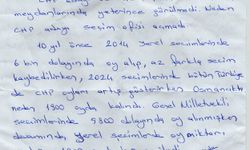 meydanlarında yeterince görülmedi. Neden
CHP adayı seçim ofisi açmadı
10 yıl önce 2014 yerel seçimlerinde
6 bin dolayında oy alıp, az farkla seçim
kaybedilirken, 2024 seçimlerinde bütün Türkiye
de CHP oyları artış gösterirken Osmancık
neden 1900 oyda kalındı. Genel Milletvekili
seçimlerinde 9800 dolayında oy alınmışken
devamında, yerel seçimlerde oy miktarı